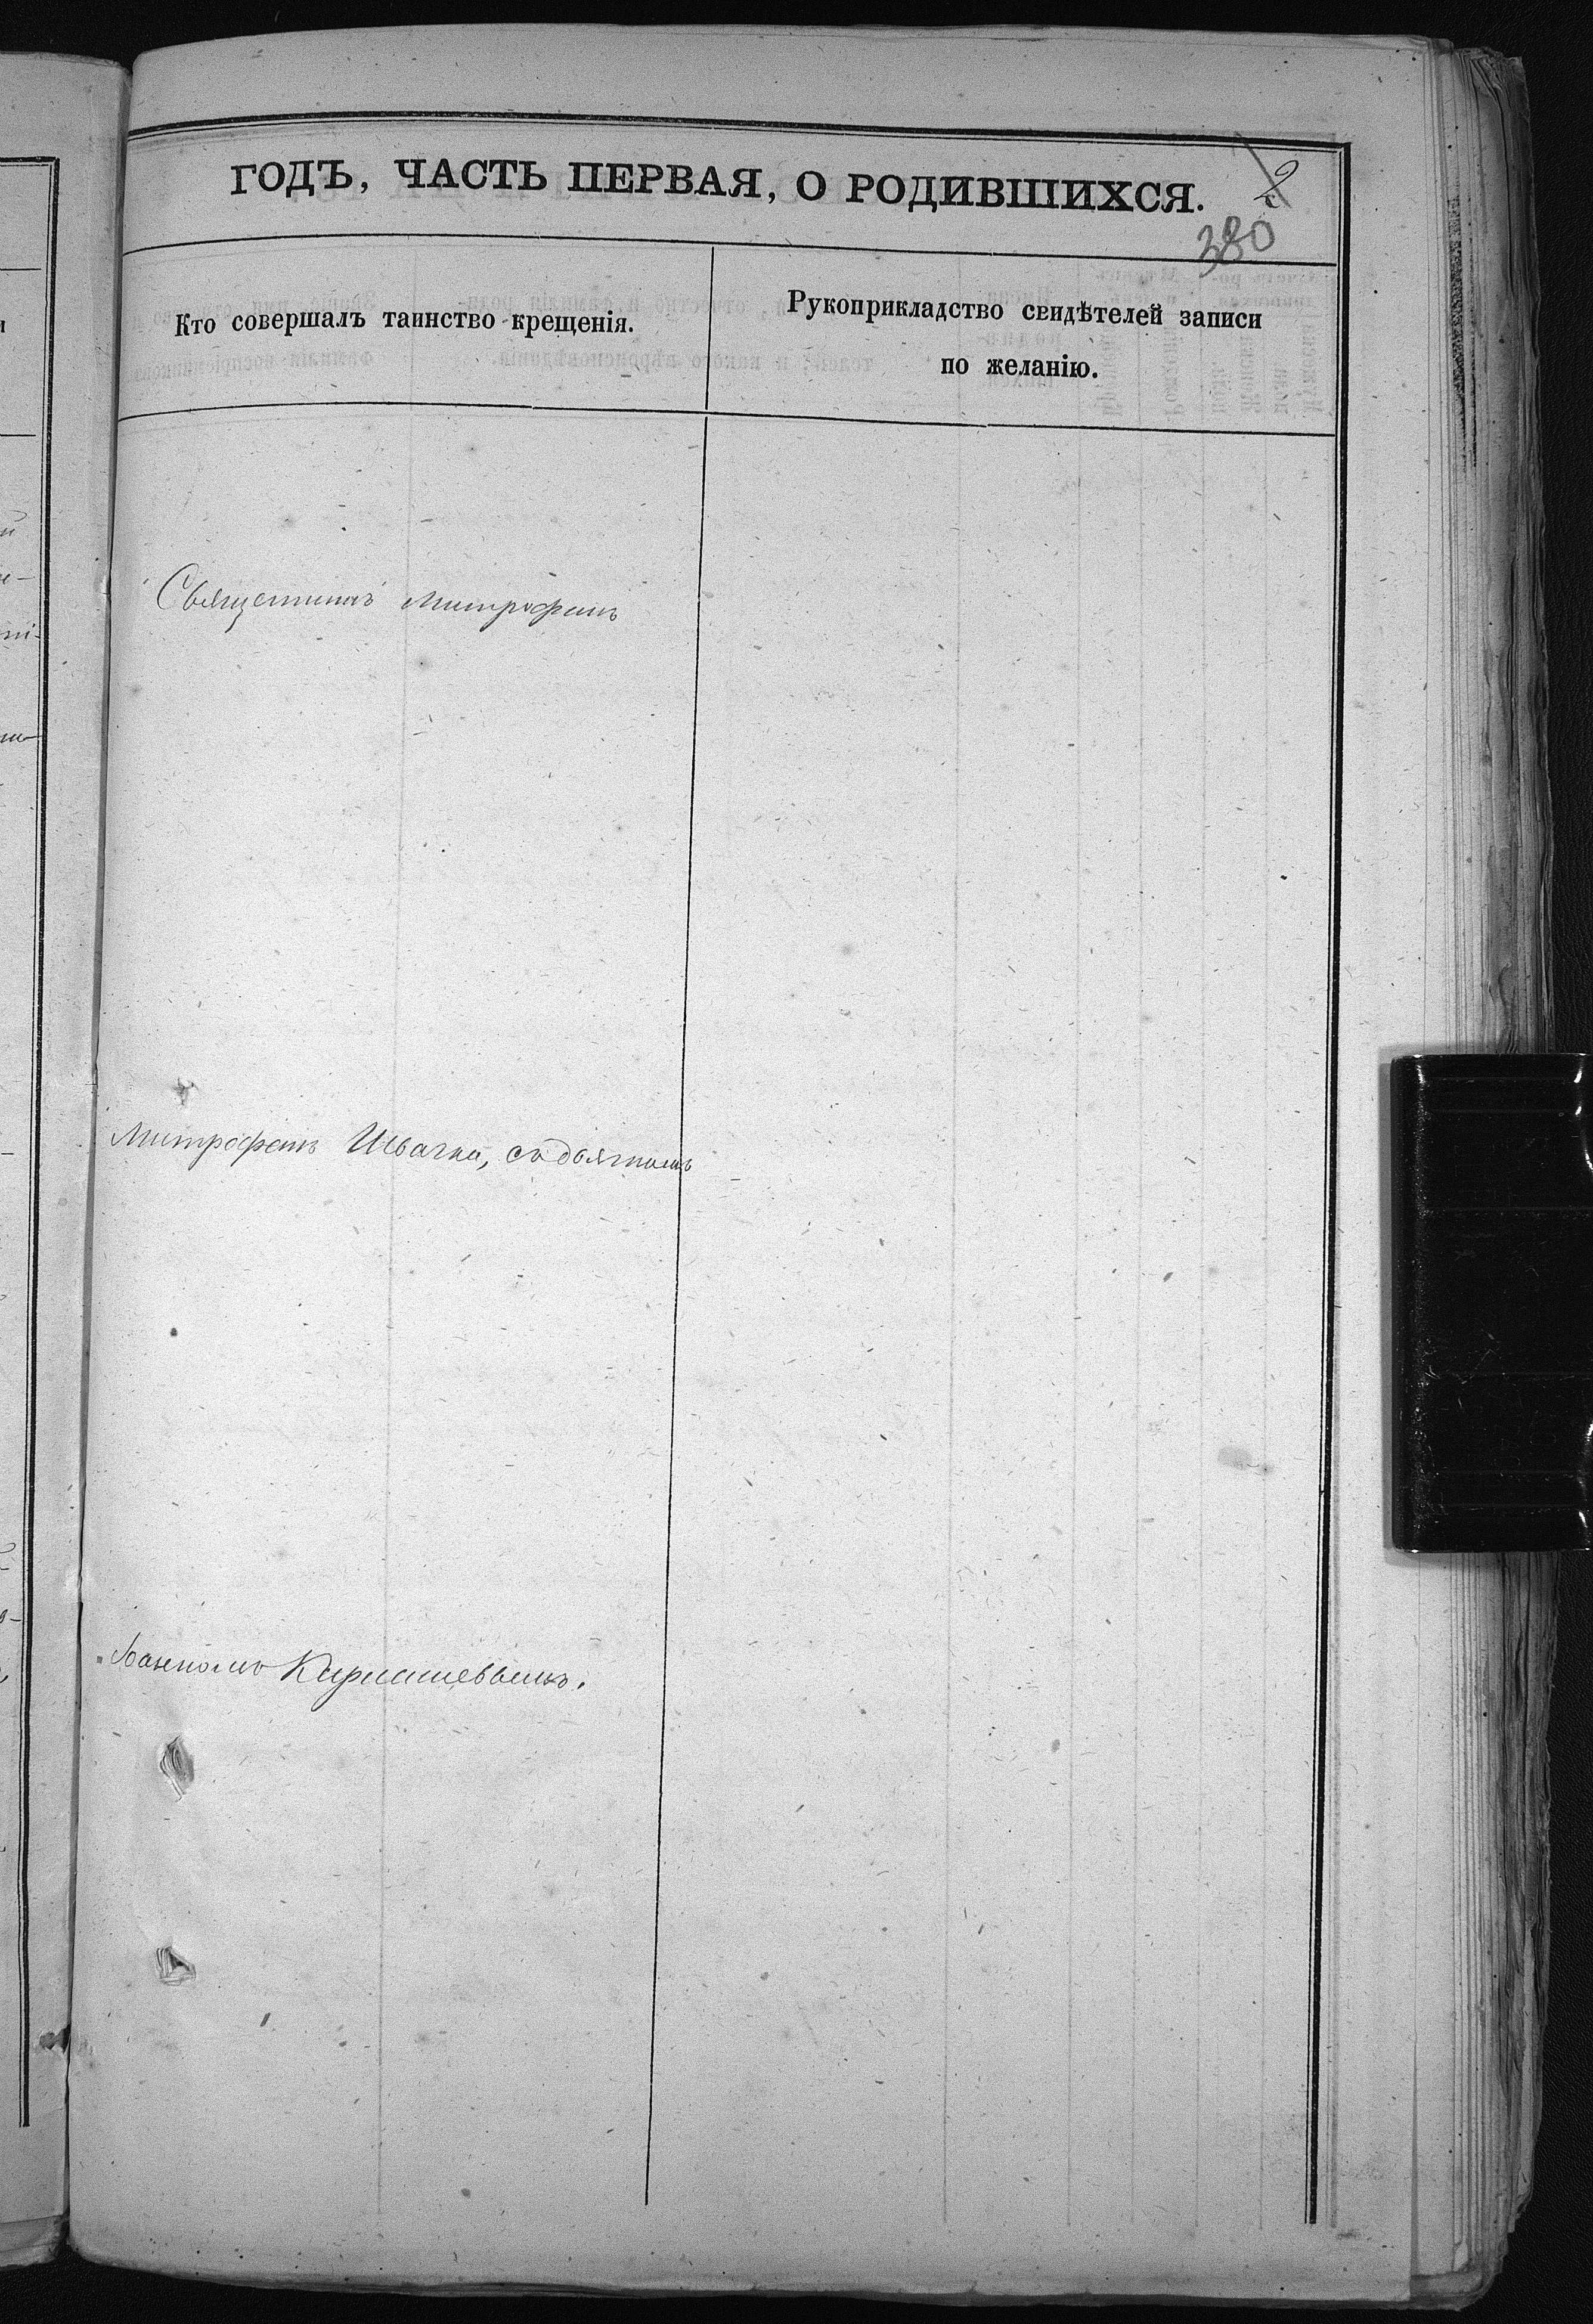 ГОДЪ, ЧАСТЬ ПЕРВАЯ, О РОДИВШИХСЯ.
2
380
Кто совершалъ таинство крещенія.
Рукоприкладство свидѣтелей записи
по желанію.
Священникъ Митрофанъ
Митрофанъ Ивачко, съ дьячкомъ